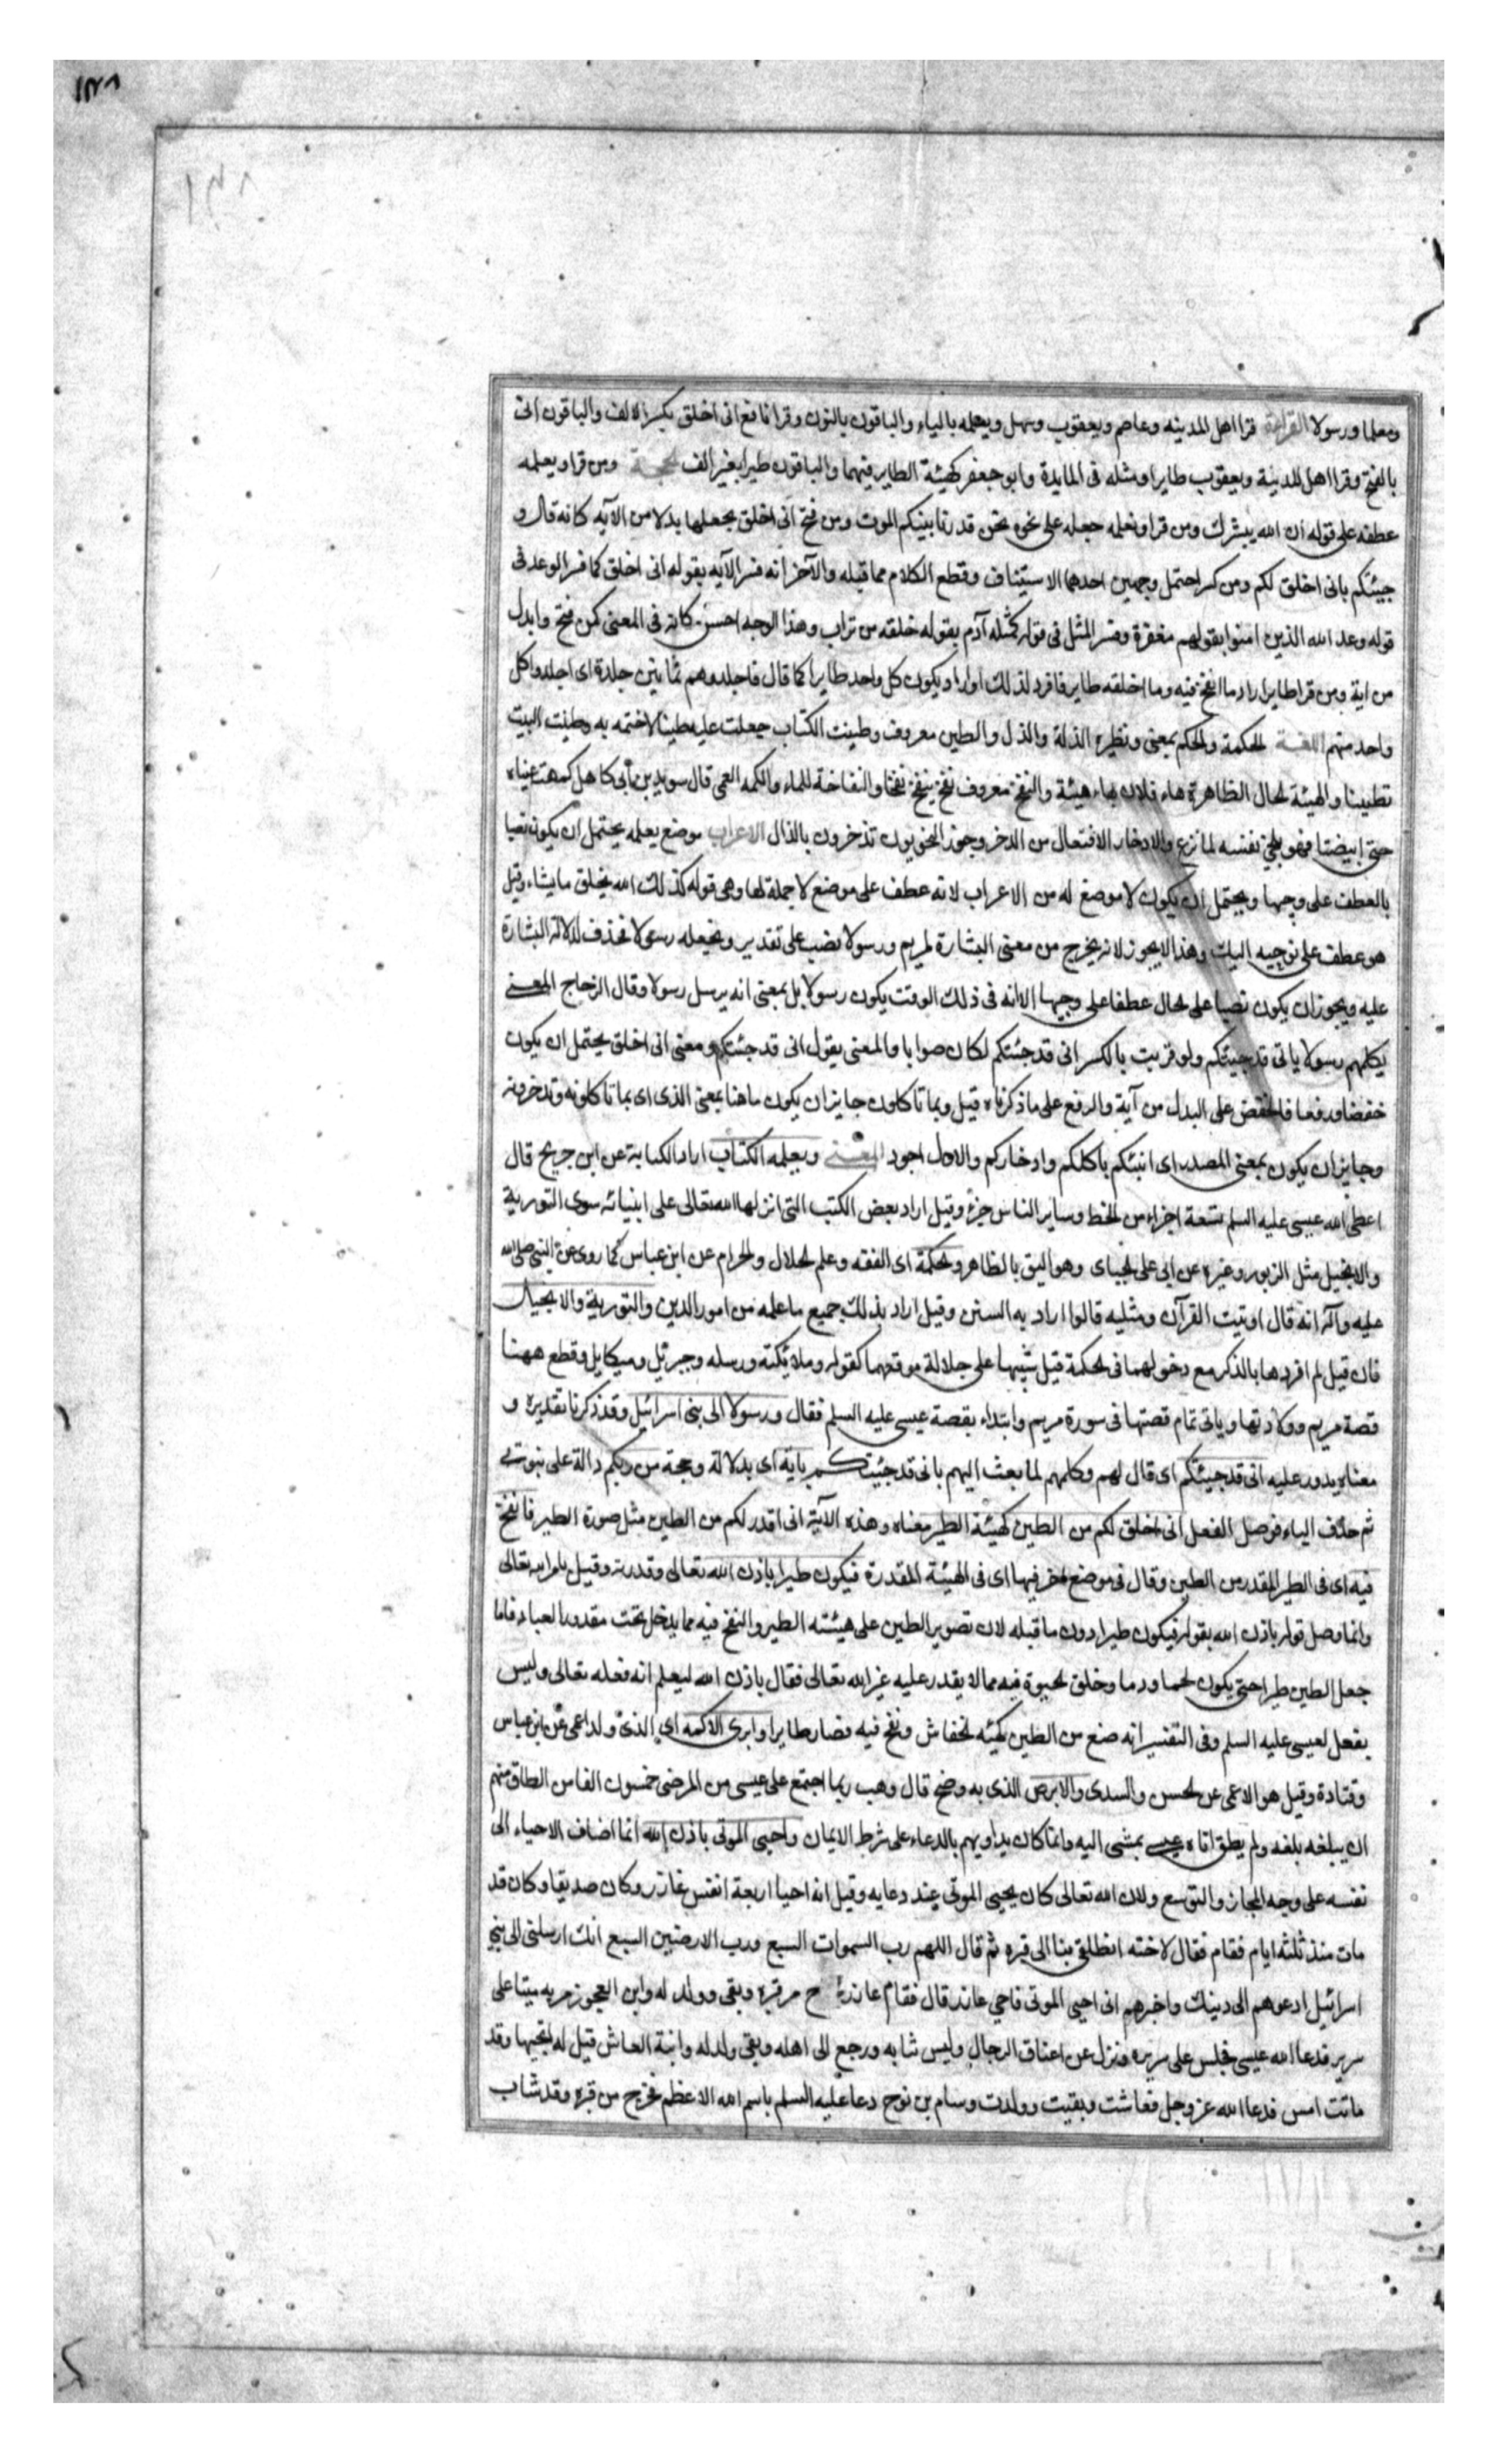 ١٤٨
١٤٨
ومعلما ورسولا القراءة قرا اهل المدينه وعاصم ويعقوب وسهل ويعلمه بالياء والباقون بالنون وقرا نافع انى اخلق بكسر الالف والباقون انى
بالفتح وقرا اهل المدينة ويعقوب طايرا ومثله فى المايدة وابو جعفر كهيئة الطاير فيهما والباقون طيرا بغير الف الحجة ومن قرا ويعلمه
عطفه على قوله ان الله يبشرك ومن قرا ونعلمه جعله على نحو نحن قدرنا بينكم الموت ومن فتح انى اخلق جعلها بدلا من الآيه كانه قال و
جيئتكم بانى اخلق لكم ومن كسر احتمل وجهين احدهما الاستيناف وقطع الكلام مما قبله والآخر انه فسر الآيه بقوله انى اخلق كما فسر الوعد فى
قوله وعد الله الذين امنوا بقوله لهم مغفرة وفسر المثل فى قوله كمثل آدم بقوله خلقه من تراب وهذا الوجه احسن كانه فى المعنى كمن فتح وابدل
من اية ومن قرا طايرا اراد ما انفخ فيه وما اخلقه طاير فافرد لذلك او اراد يكون كل واحد طايرا كما قال فاجلدوهم ثمانين جلدة اى اجلدوا كل
واحد منهم اللغة الحكمة والحكم بمعنى ونظيره الذلة والذل والطين معروف وطينت الكتاب جعلت عليه طينا لاختمه به وطينت البيت
تطيينا والهيئة الحال الظاهرة هاء فلان يهاء هيئة والنفخ معروف نفخ ينفخ نفخا والنفاخة للماء والكمه العمى قال سويد بن أبى كاهل كمهت عيناه
حتى ابيضتا فهو يلحى نفسه لما نزع والادخار الافتعال من الدخر وجوز النحويون تذخرون بالذال الاعراب موضع يعلمه يحتمل ان يكون نصبا
بالعطف على وجيها ويحتمل ان يكون لا موضع له من الاعراب لانه عطف على موضع لا جملة لها وهى قوله كذلك الله يخلق ما يشاء وقيل
هو عطف على نوحيه اليك وهذا لا يجوز لانه يخرج من معنى البشارة لمريم ورسولا نصب على تقدير ونجعله رسولا فحذف لدلالة البشارة
عليه ويجوز ان يكون نصبا على الحال عطفا على وجيها الا انه فى ذلك الوقت يكون رسولا بل بمعنى انه يرسل رسولا وقال الزجاج المعنى
يكلمهم رسولا بانى قد جيئتكم ولو قريت بالكسر انى قد جئتكم لكان صوابا والمعنى يقول انى قد جئتكم ومعنى انى اخلق يحتمل ان يكون
خفضا ورفعا فالخفض على البدل من آية والرفع على ما ذكرناه قيل وبما تاكلون جايز ان يكون ما هنا بمعنى الذى اى بما تاكلونه وتدخرونه
وجايز ان يكون بمعنى المصدر اى انبئكم باكلكم وادخاركم والاول اجود المعنى ويعلمه الكتاب اراد الكتابة عن ابن جريح قال
اعطى الله عيسى عليه السلم تسعة اجزاء من الخط وساير الناس جزء وقيل اراد بعض الكتب التى انزلها الله تعالى على انبيائه سوى التورية
والانجيل مثل الزبور وغيره عن ابى على الجباى وهو اليق بالظاهر والحكمة اى الفقه وعلم الحلال والحرام عن ابن عباس كما روى عن النبى صلى الله
عليه وآله انه قال اوتيت القرآن ومثليه قالوا اراد به السنن وقيل اراد بذلك جميع ما علمه من امور الدين والتورية والانجيل
فان قيل لم افردها بالذكر مع دخولهما فى الحكمة قيل تنبيها على جلالة موقعهما كقوله وملائكته ورسله وجبرئيل وميكايل وقطع ههنا
قصة مريم وولادتها وياتى تمام قصتها فى سورة مريم وابتداء بقصة عيسى عليه السلم فقال ورسولا الى بنى اسرائيل وقد ذكرنا تقديره و
معناه يدور عليه انى قد جيئتكم اى قال لهم وكلمهم لما بعث اليهم بانى قد جئيتكم باية اى بدلالة وحجة من ربكم دالة على نبوتى
ثم حذف الباء فوصل الفعل انى اخلق لكم من الطين كهيئة الطير معناه وهذه الآية انى اقدر لكم من الطين مثل صورة الطير فانفخ
فيه اى فى الطير المقدر من الطين وقال فى موضع آخر فيها اى فى الهيئة المقدرة فيكون طيرا باذن الله تعالى وقدرته وقيل بامر الله تعالى
وانما وصل قوله باذن الله بقوله فيكون طيرا دون ما قبله لان تصوير الطين على هيئته الطير والنفخ فيه مما يدخل تحت مقدور العباد فاما
جعل الطين طيرا حتى يكون لحما ودما وخلق الحيوة فيه مما لا يقدر عليه غير الله تعالى فقال باذن الله ليعلم انه فعله تعالى وليس
بفعل لعيسى عليه السلم وفى التفسير انه صنع من الطين كهيئه الخفاش ونفخ فيه فصار طايرا وابرى الاكمه اى الذى ولد اعمى عن ابن عباس
وقتادة وقيل هو الاعمى عن الحسن والسدى والابرص الذى به وضح قال وهب ربما اجتمع على عيسى من المرضى خمسون الفا من اطاق منهم
ان يبلغه بلغه ولم يطق اتاه عيسى يمشى اليه وانما كان يداويهم بالدعاء على شرط الايمان واحيى الموتى باذن الله انما اضاف الاحياء الى
نفسه على وجه المجاز والتوسع ولان الله تعالى كان يحيى الموتى عند دعايه وقيل انه احيا اربعة انفس عازر وكان صديقا وكان قد
مات منذ ثلثه ايام فقام فقال لاخته انطلقى بنا الى قبره ثم قال اللهم رب السموات السبع ورب الارضين السبع انك ارسلتنى الى بنى
اسرائيل ادعوهم الى دينك واخبرهم انى احيى الموتى فاحى عاذر قال فقام عاذر من قبره وبقى وولد له وابن العجوز مر به ميتا على
سرير فدعا الله عيسى فجلس على سريره ونزل عن اعناق الرجال ولبس ثيابه ورجع الى اهله وبقى وولد له وابنة العاشر قيل له اتحييها وقد
ماتت امس فدعا الله عز وجل فعاشت وبقيت وولدت وسام بن نوح دعا عليه السلم باسم الله الاعظم فخرج من قبره وقد شاب